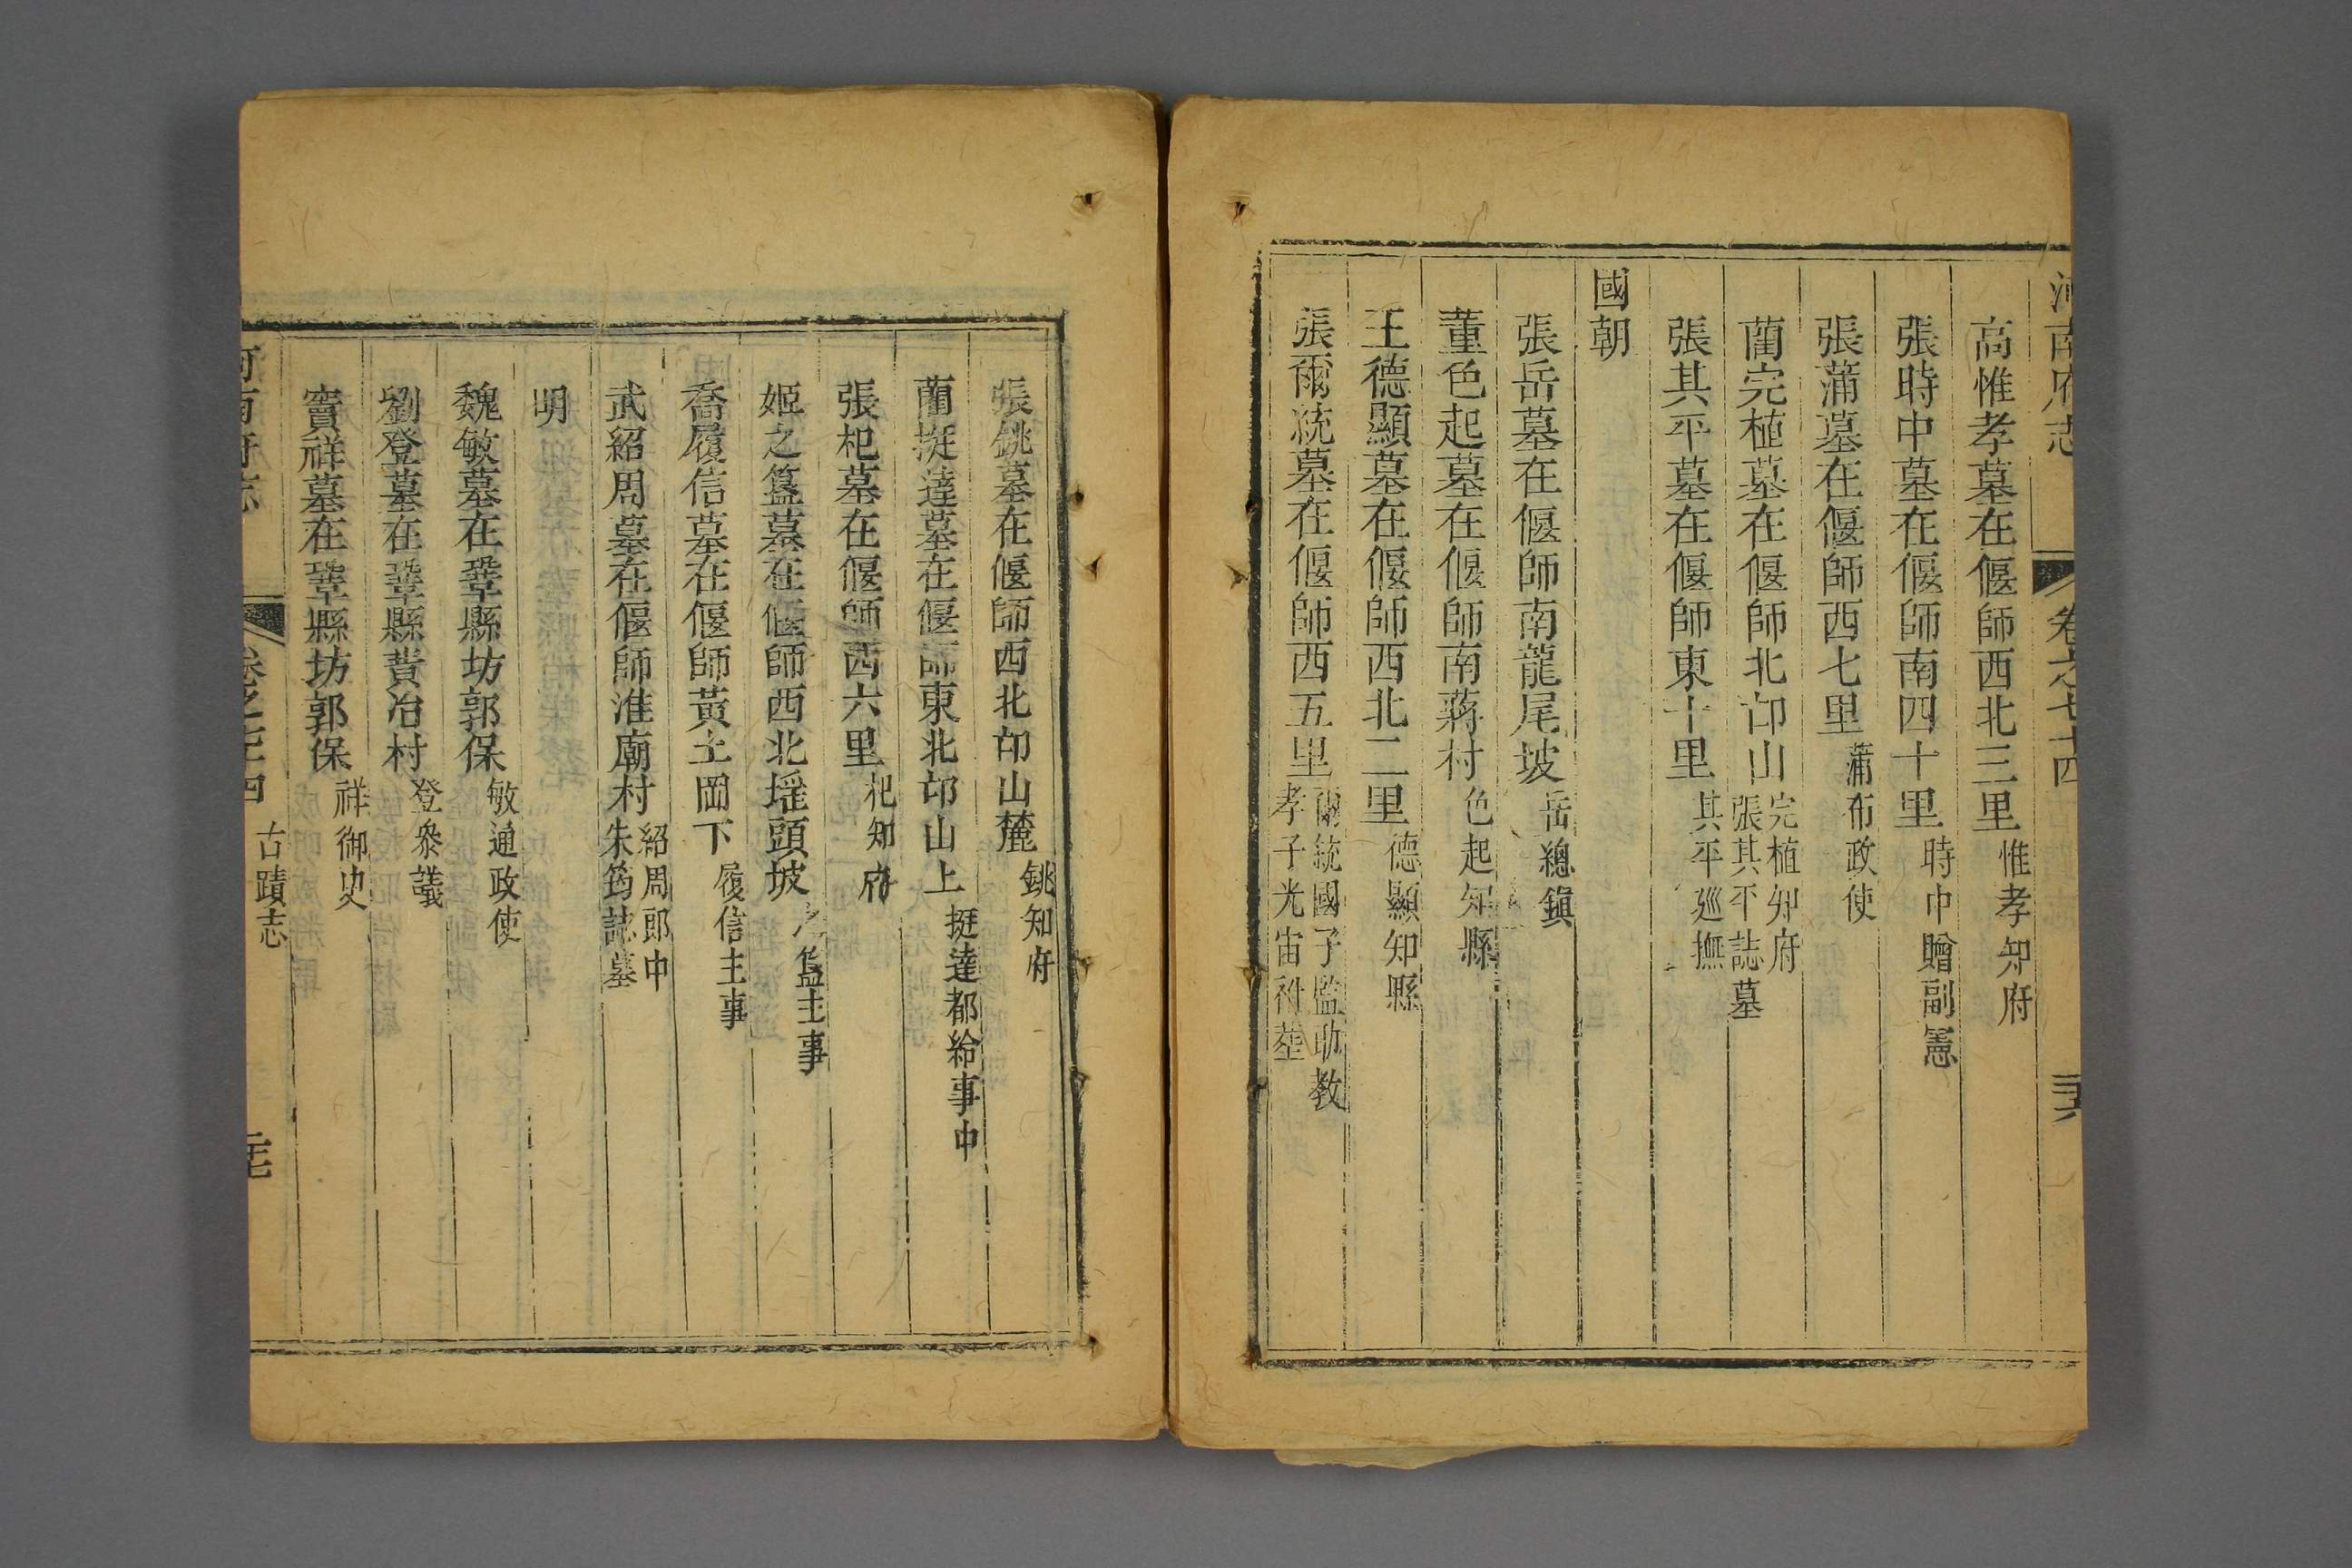 河南府志 卷之七十四 三六
高惟孝墓在偃師西北三里 惟孝知府
張時中墓在偃師南四十里 時中贈副憲
張蒲墓在偃師西七里 蒲布政使
藺完植墓在偃師北邙山 完植知府 張其平誌墓
張其平墓在偃師東十里 其平廵撫
國朝
張岳墓在偃師南龍尾坡 岳總鎮
董色起墓在偃師南蔣村 色起知縣
王德顯墓在偃師西北二里 德顯知縣
張爾統墓在偃師西五里 爾統國子監助教 孝子光宙祔塟
張銚墓在偃師西北邙山麓 銚知府
藺挺達墓在偃師東北邙山上 挺達都給事中
張杞墓在偃師西六里 杞知府
姬之簋墓在偃師西北塔頭坡 之簋主事
喬履信墓在偃師黃土岡下 履信主事
武紹周墓在偃師淮廟村 紹周郎中 朱筠誌墓
明
魏敏墓在鞏縣坊郭保 敏通政使
劉登墓在鞏縣黃冶村 登叅議
竇祥墓在鞏縣坊郭保 祥御史
河南府志 卷之七十四 古蹟志 三七